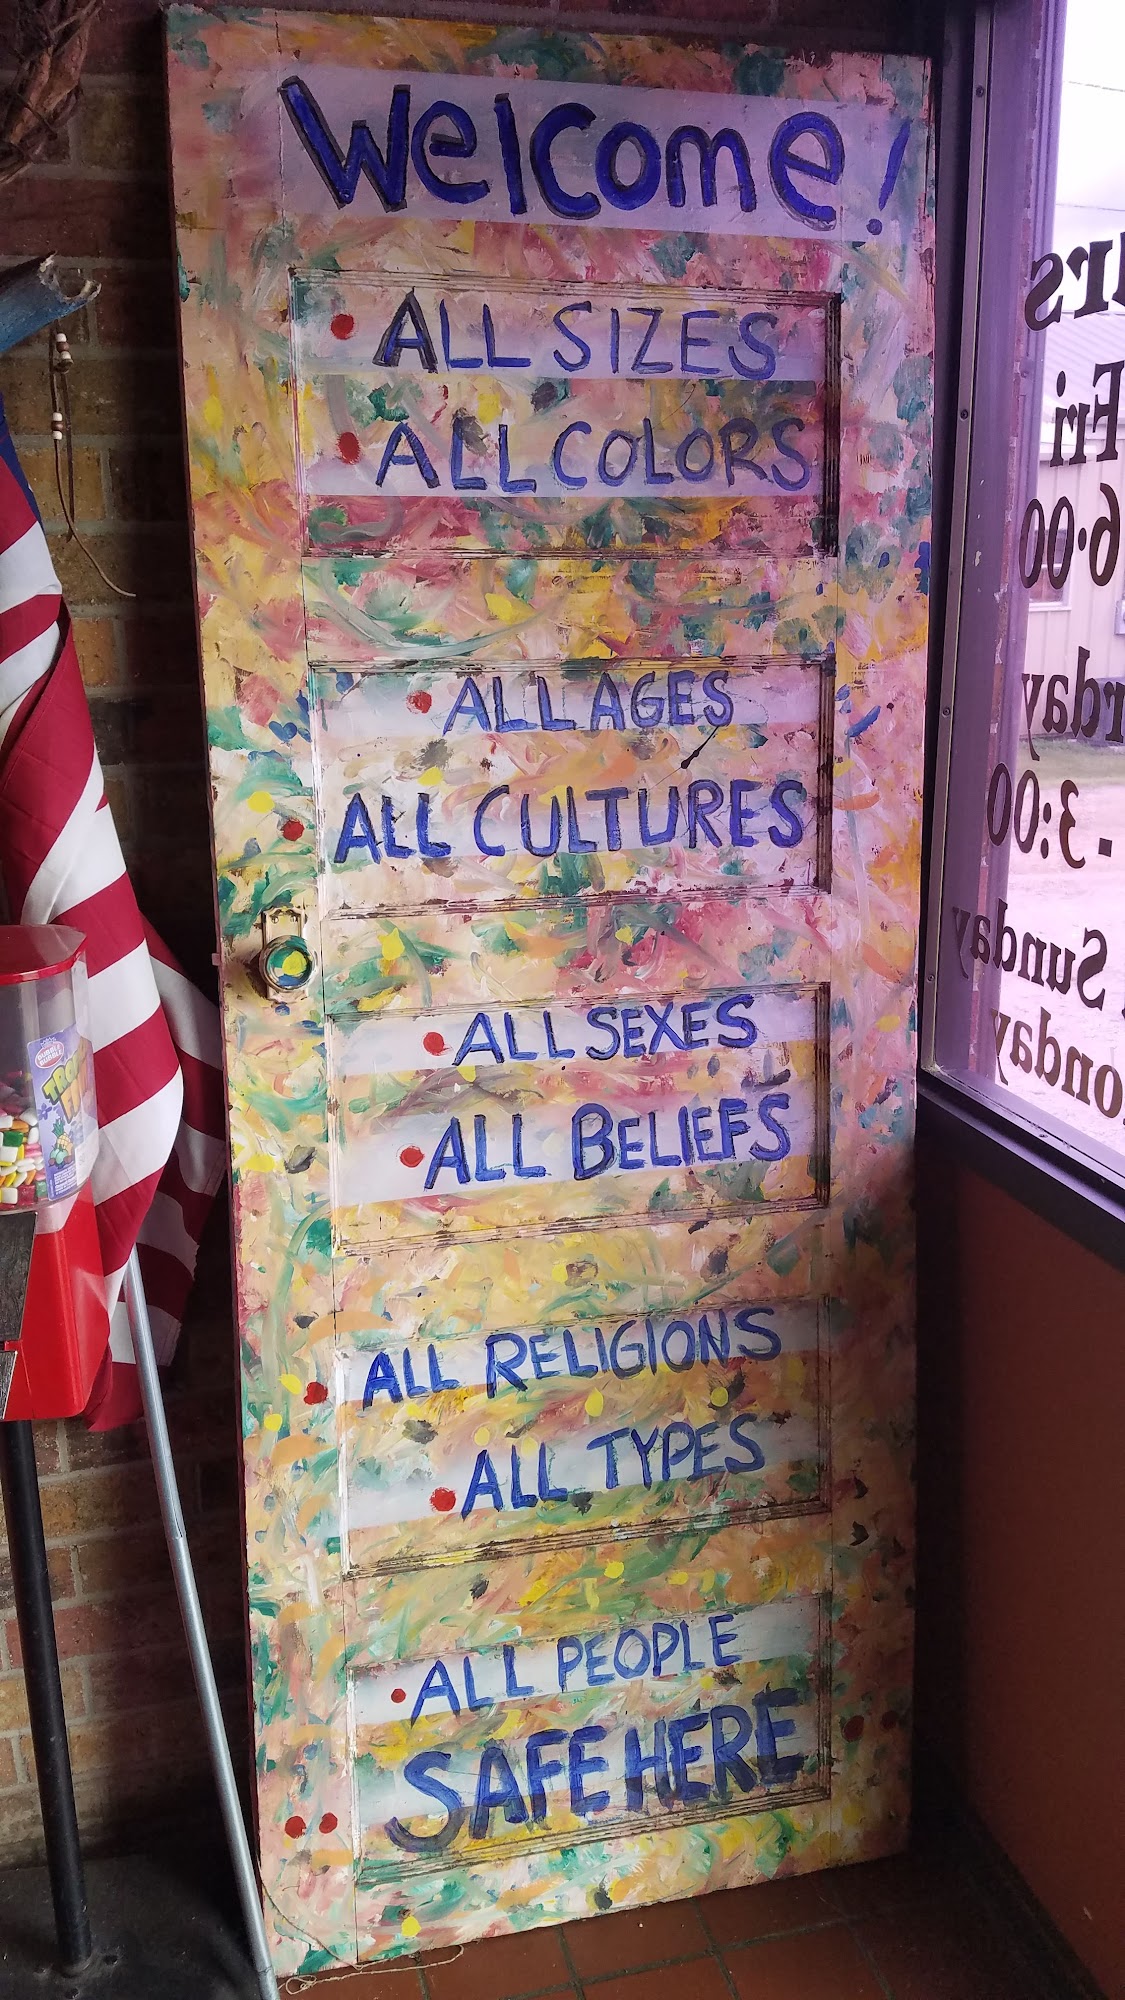 Welcome!
ALL SIZES
ALL COLORS
ALL AGES
ALL CULTURES
ALL SEXES
ALL BELIEFS
ALL RELIGIONS
ALL TYPES
ALL PEOPLE
SAFE HERE
Fri
6:00
- 3:00
Sunday
DUBBLE BUBBLE